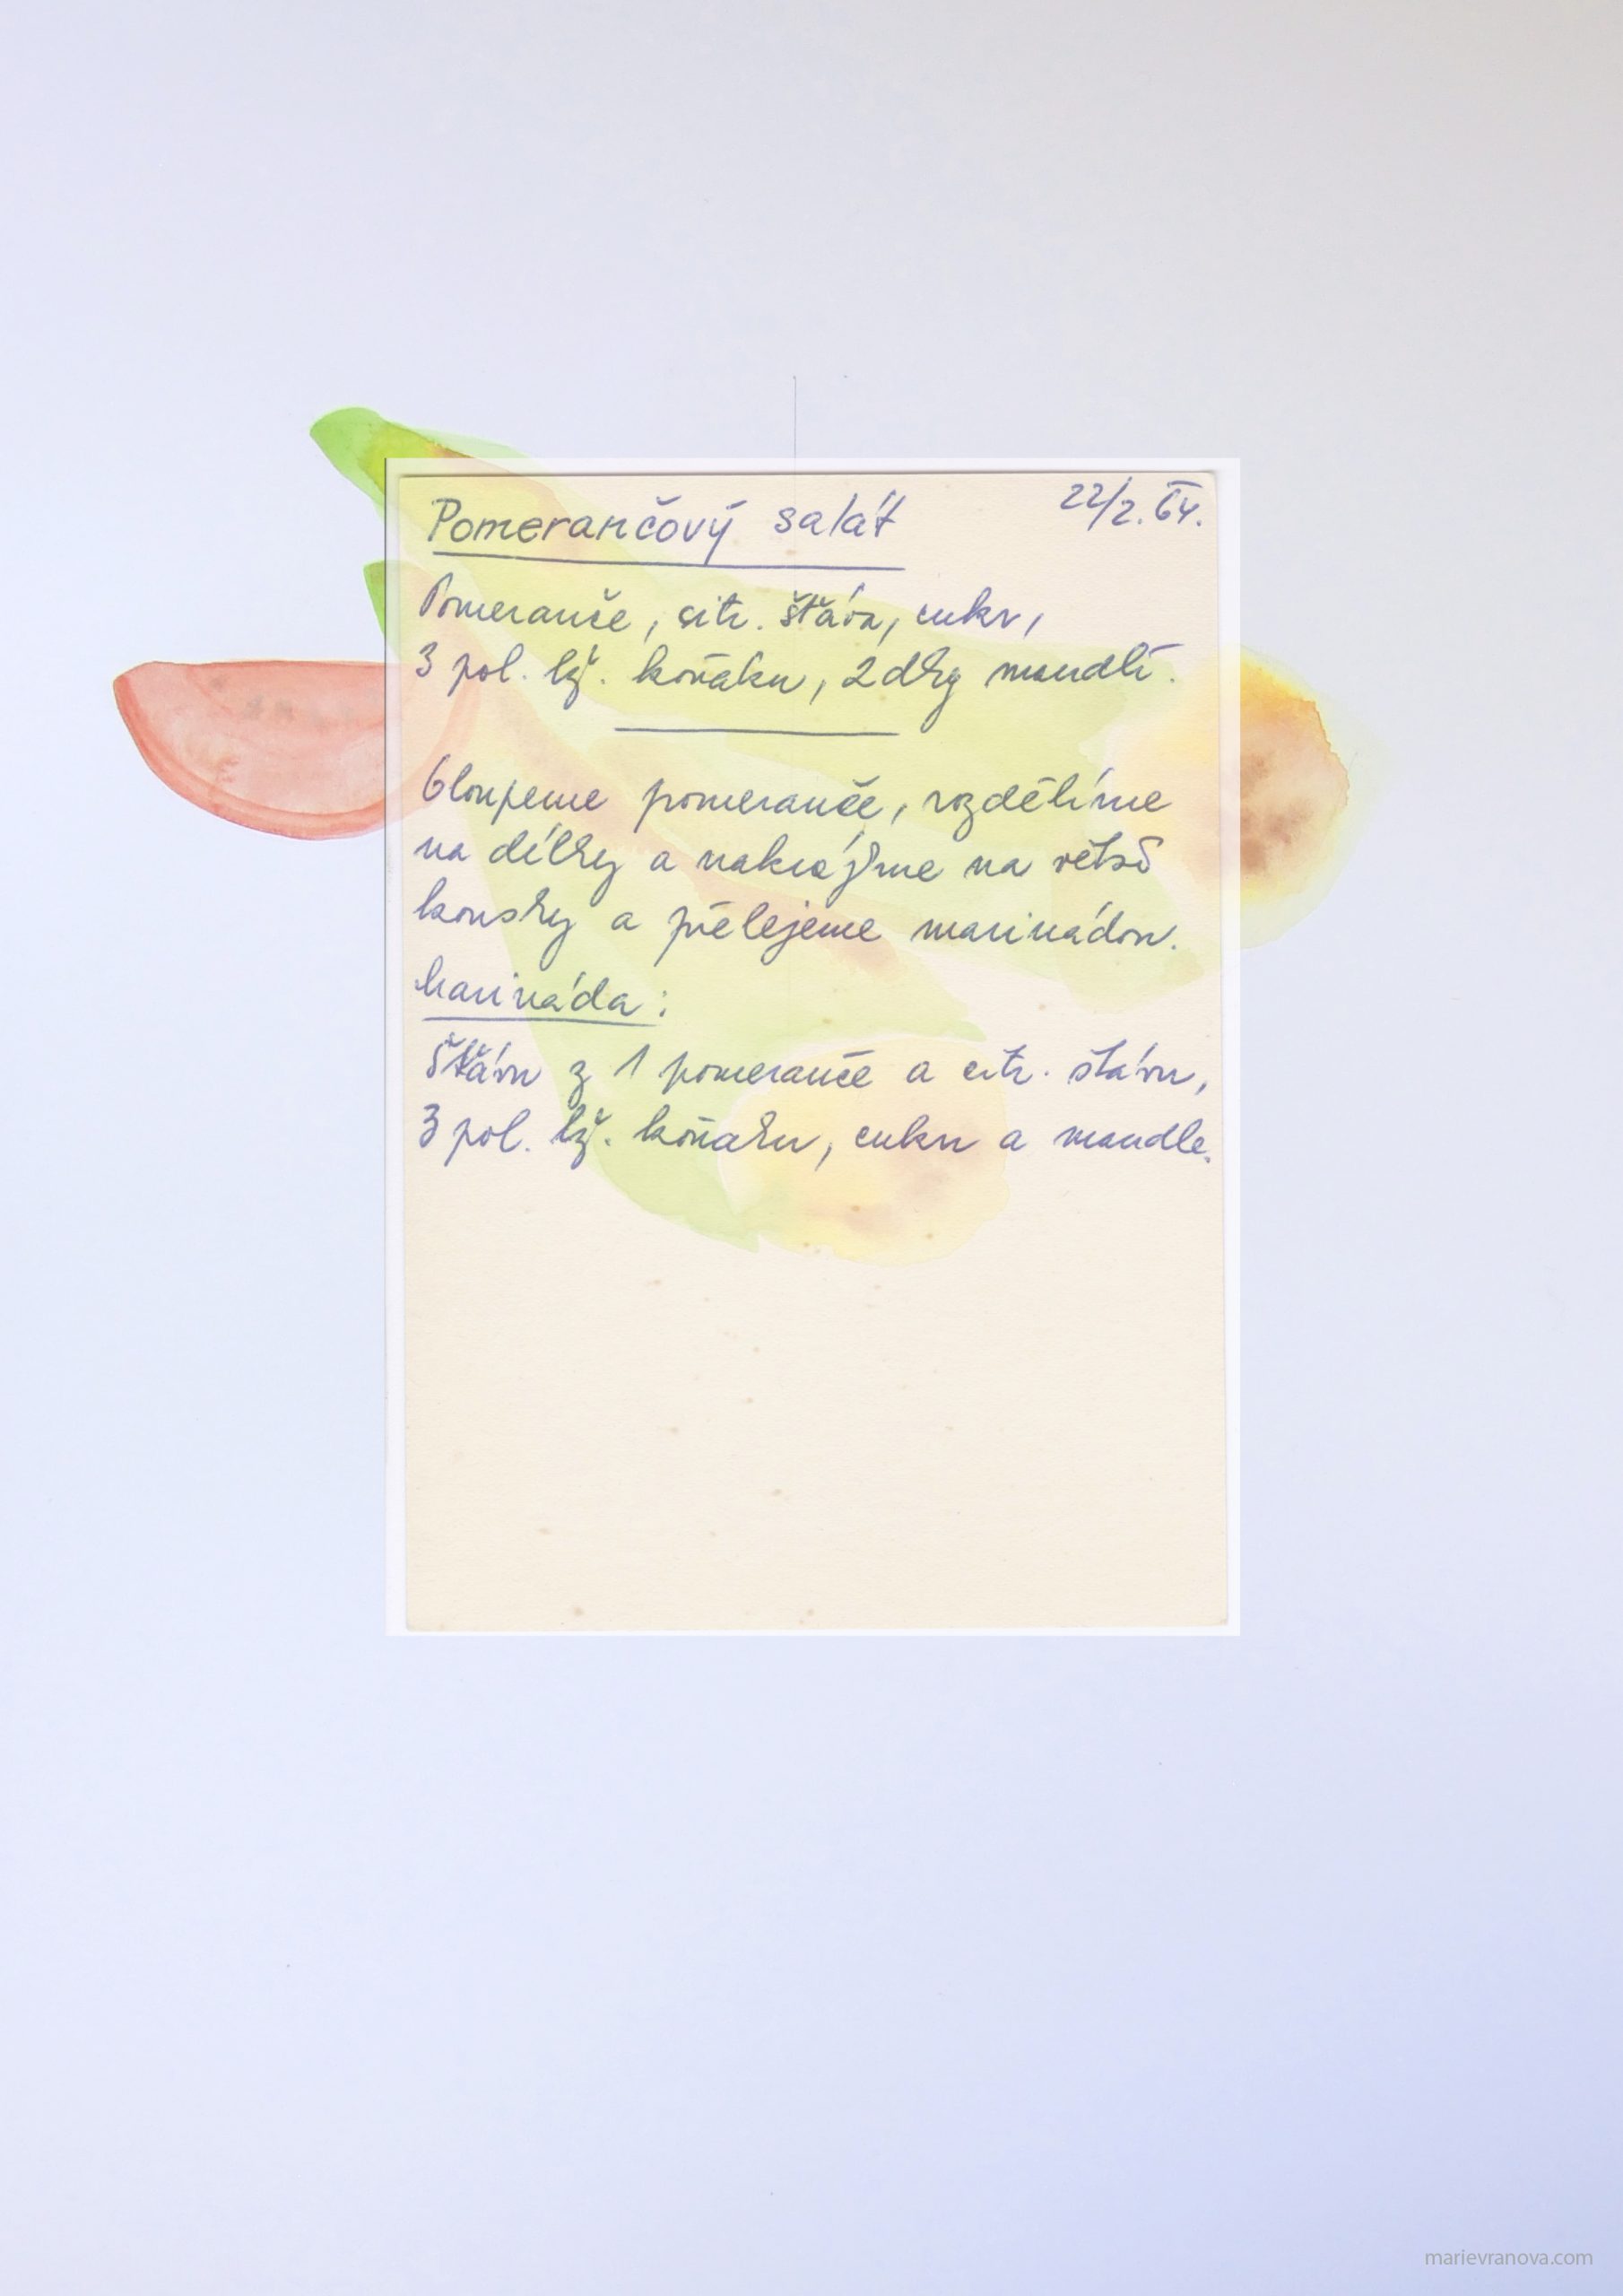 Pomerančový salát
22/2. 64.
Pomeranče, citr. šťáva, cukr,
3 pol. lž. koňaku, 2 dkg mandlí.
Oloupeme pomeranče, rozdělíme
na dílky a nakrájíme na větší
kousky a přelejeme marinádou.
Marináda:
Šťávu z 1 pomeranče a citr. štávu,
3 pol. lž. koňaku, cukr a mandle.
marievranova.com